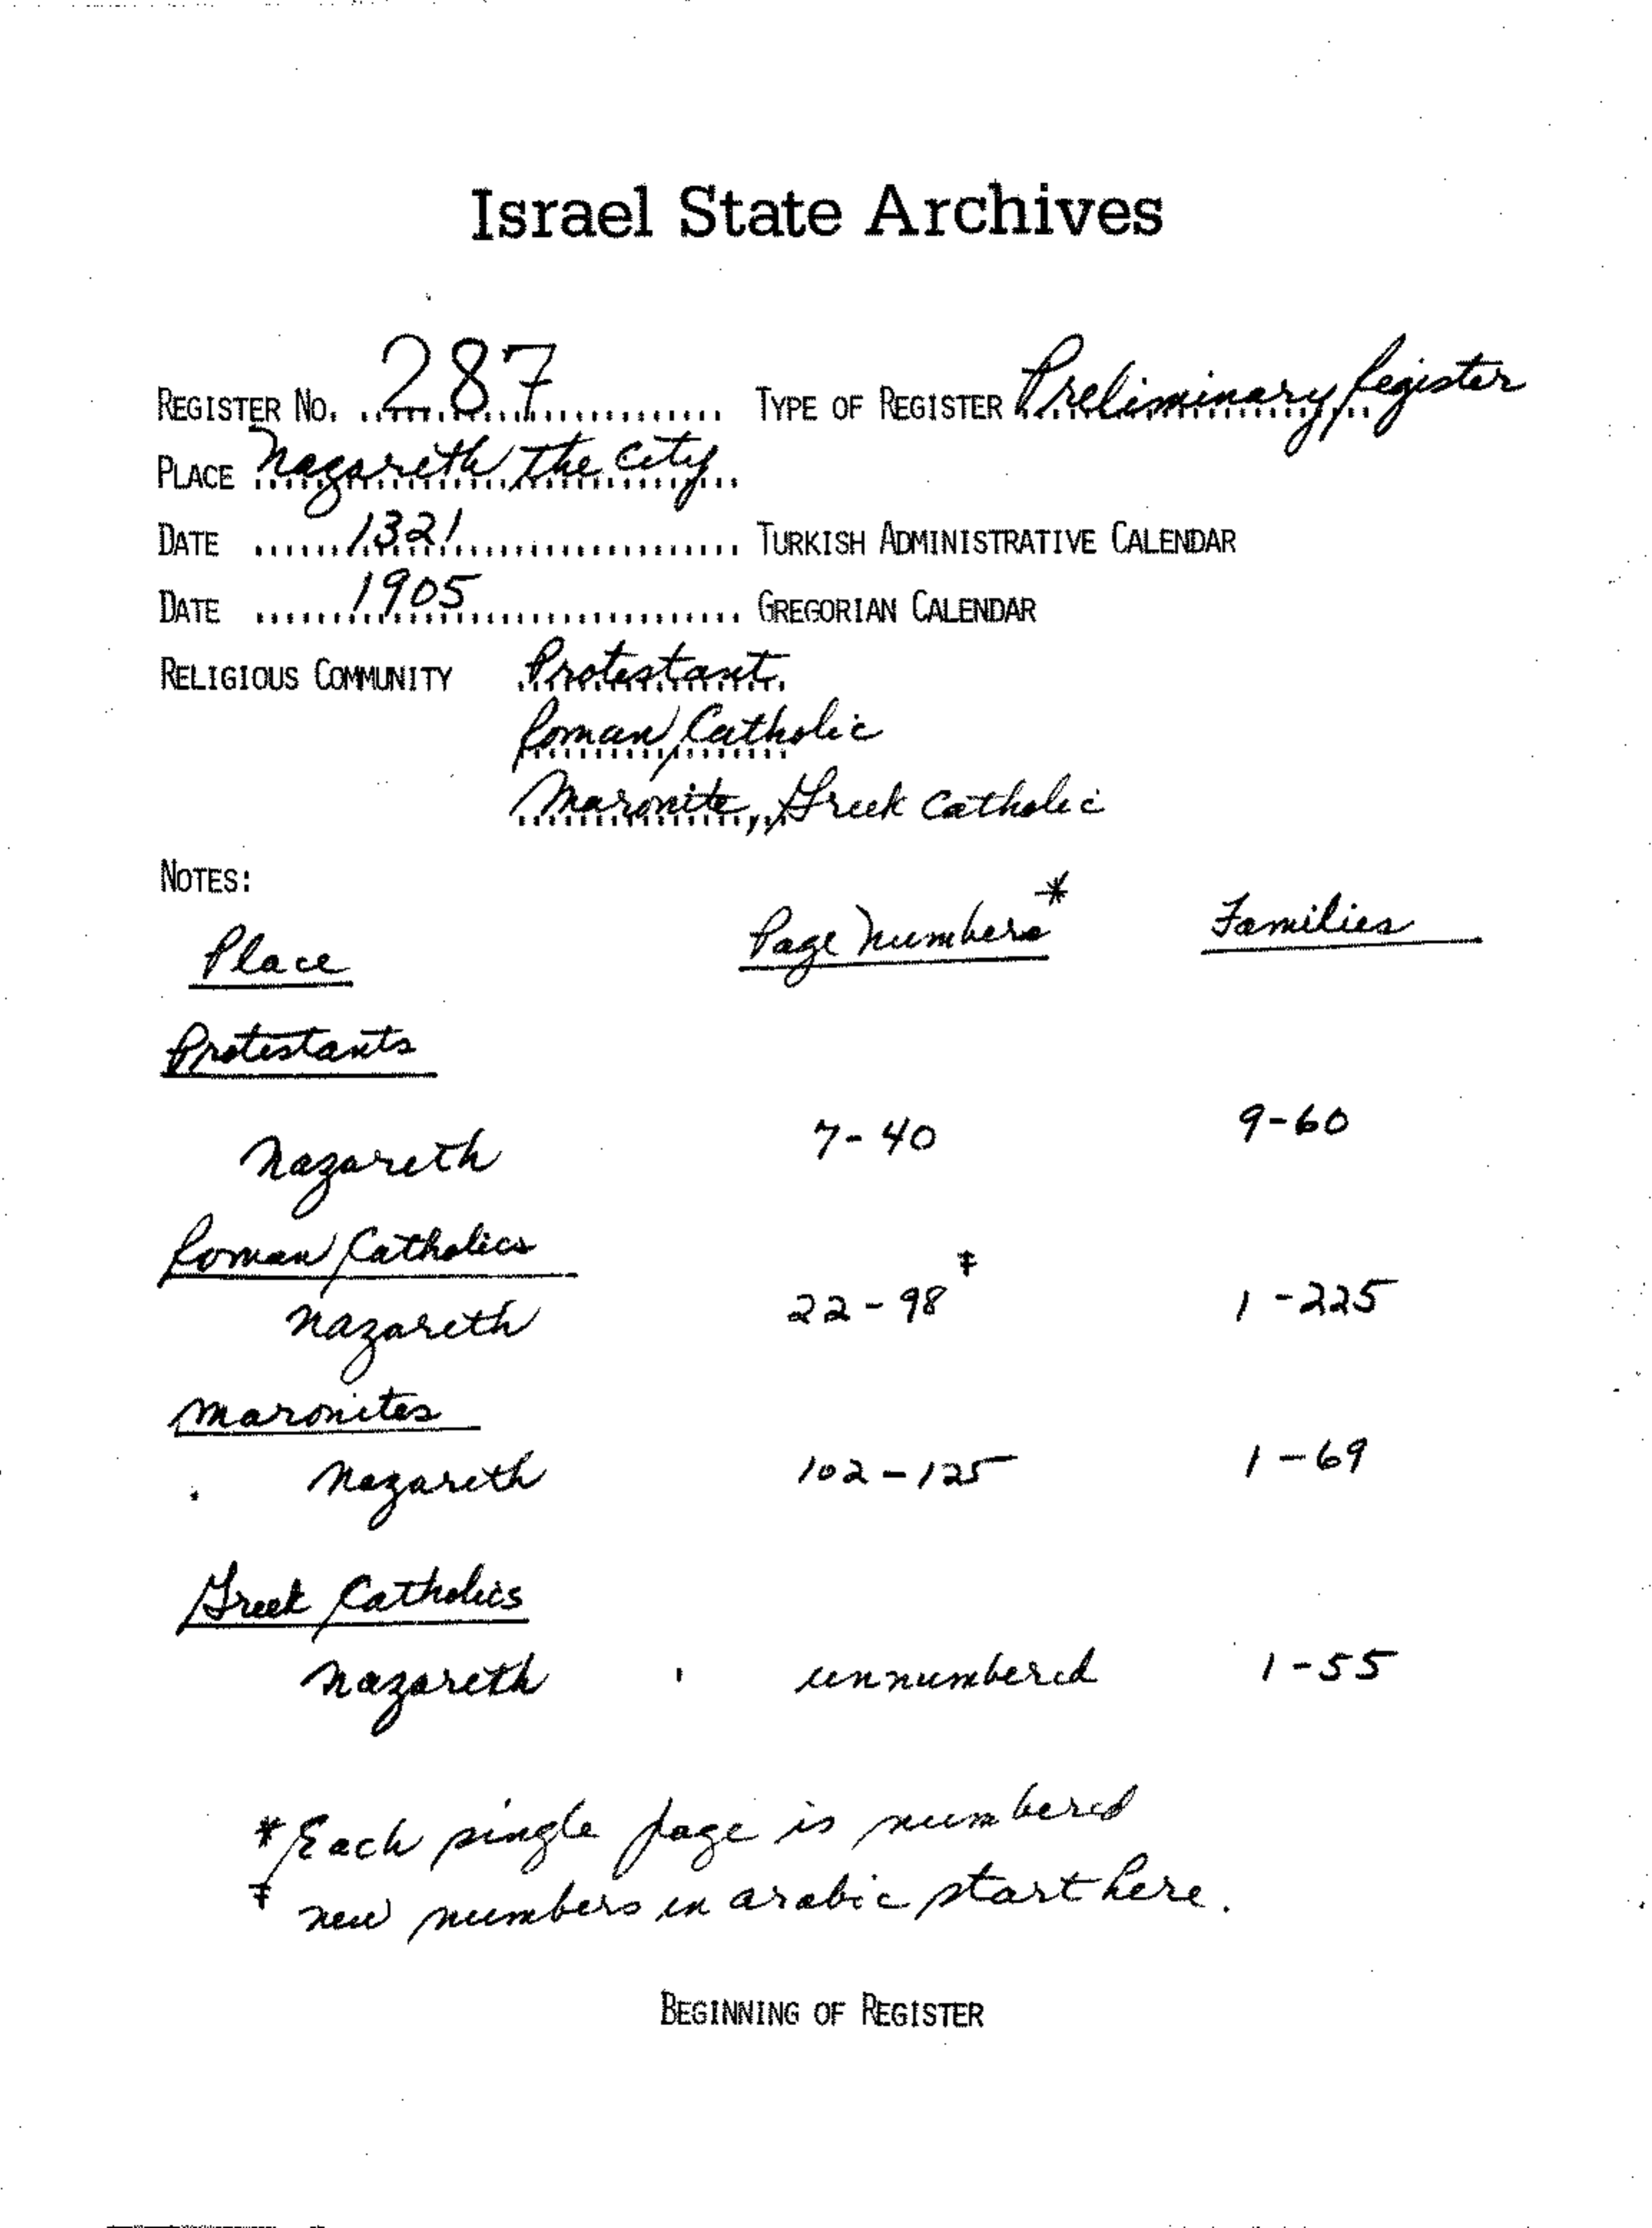 Israel State Archives
REGISTER NO. 287 TYPE OF REGISTER Preliminary Register
PLACE Nazareth the City
DATE 1321 TURKISH ADMINISTRATIVE CALENDAR
DATE 1905 GREGORIAN CALENDAR
RELIGIOUS COMMUNITY Protestant
Roman Catholic
Maronite, Greek Catholic
NOTES:
Place Page Numbers* Families
Protestants
Nazareth 7-40 9-60
Roman Catholics
Nazareth 22-98‡ 1-225
Maronites
Nazareth 102-125 1-69
Greek Catholics
Nazareth unnumbered 1-55
* Each single page is numbered
‡ new numbers in arabic start here.
BEGINNING OF REGISTER